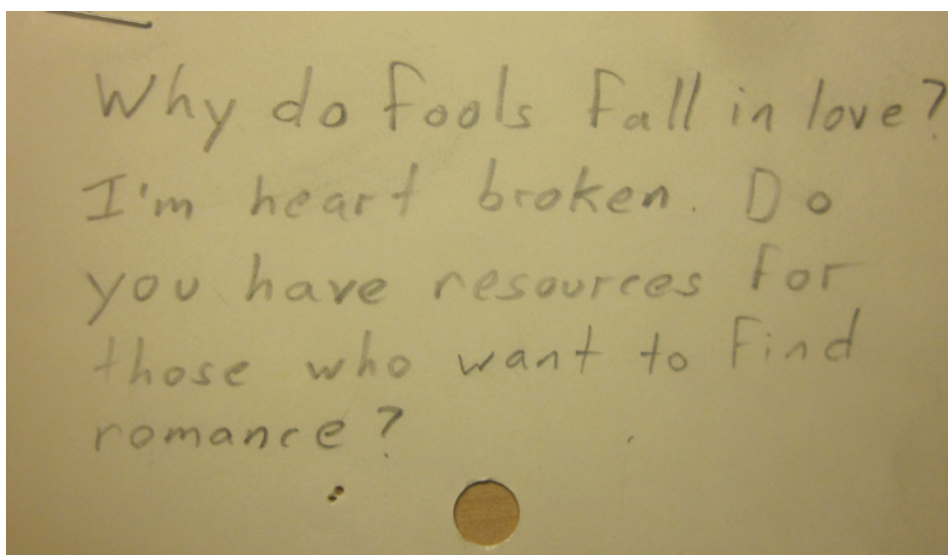 Why do fools fall in love?
I'm heart broken. Do
you have resources for
those who want to find
romance?